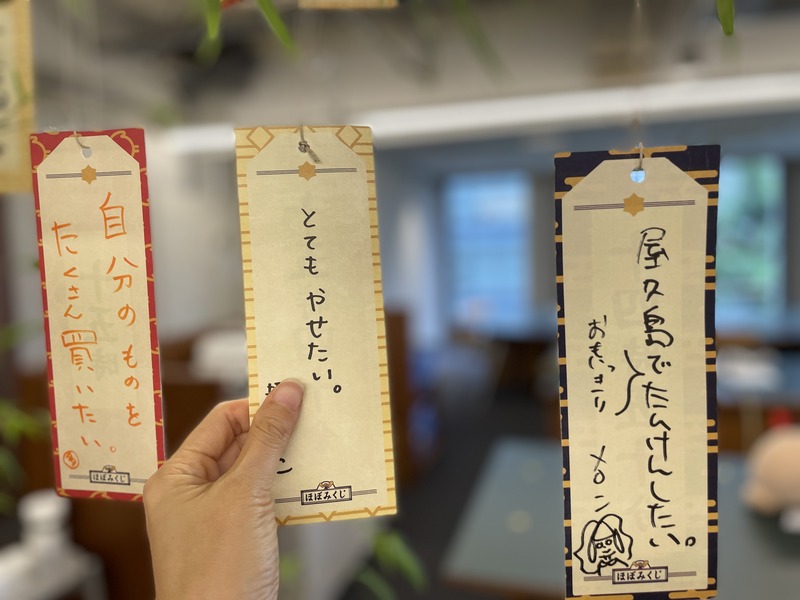 自分のものを
たくさん買いたい。
ほぼみくじ
とてもやせたい。
ほぼみくじ
屋久島でたんけんしたい。
おもいっきり
メロン
ほぼみくじ